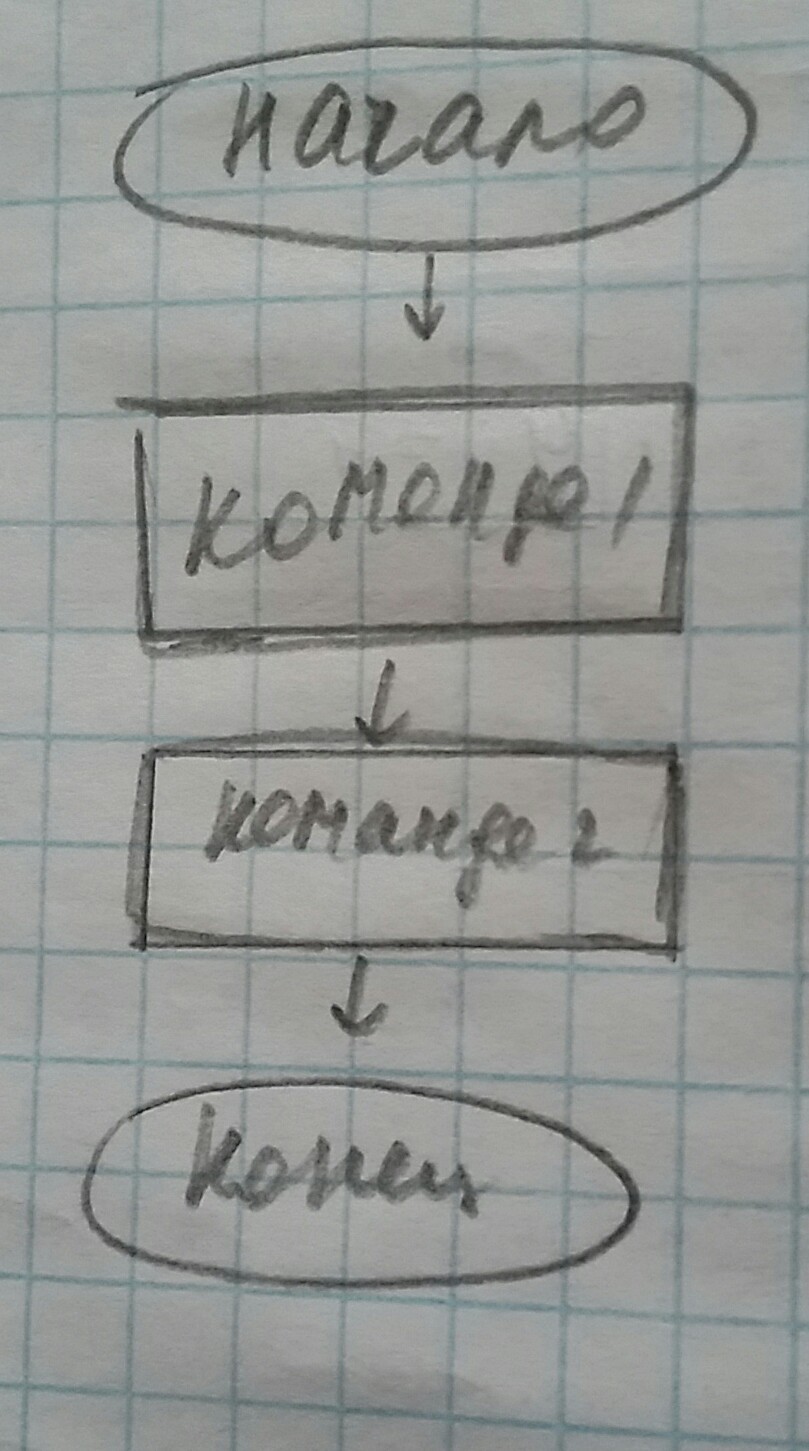 начало
команда 1
команда 2
конец